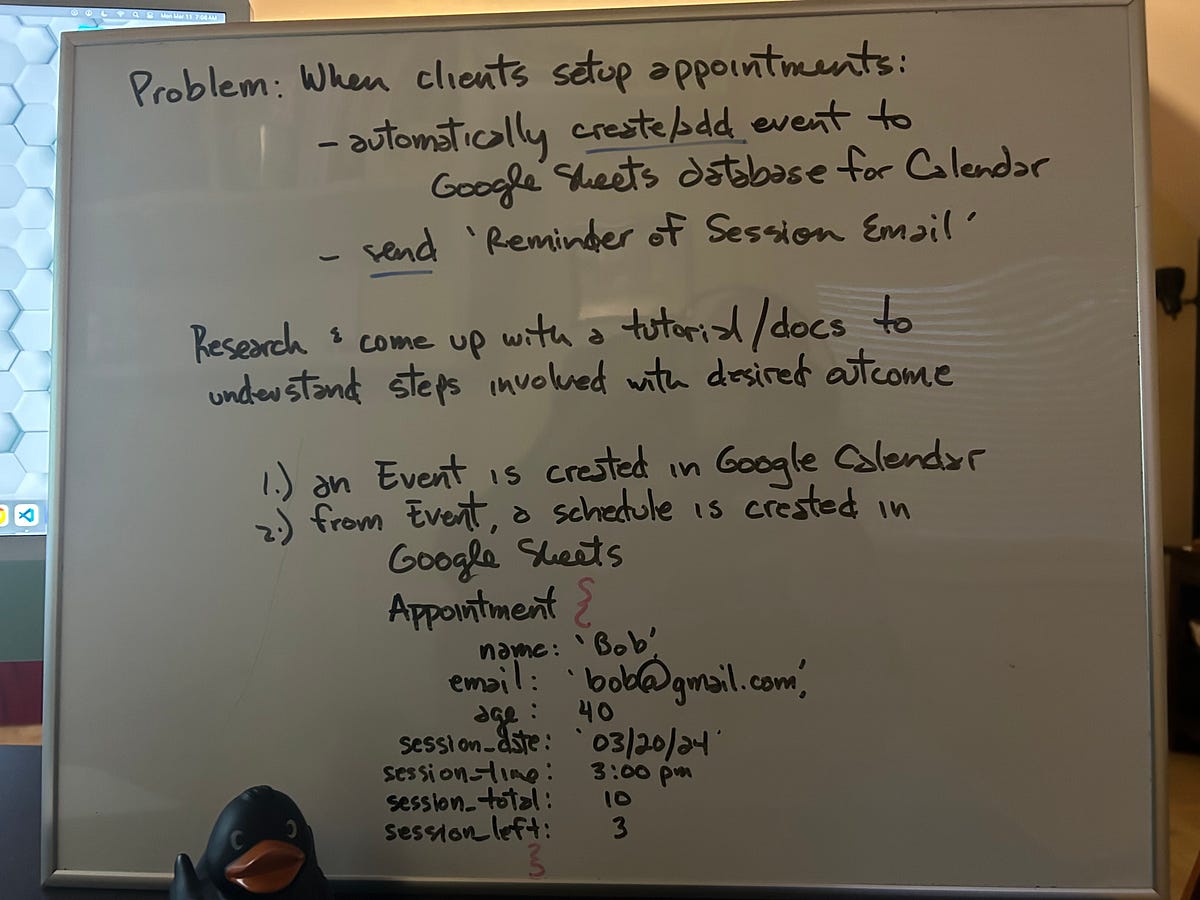 Mon Mar 11 7:04 AM
Problem: When clients setup appointments:
- automatically create/add event to
Google Sheets database for Calendar
- send 'Reminder of Session Email'
Research & come up with a tutorial/docs to
understand steps involved with desired outcome
1.) an Event is created in Google Calendar
2.) from Event, a schedule is created in
Google Sheets
Appointment {
name: 'Bob',
email: 'bob@gmail.com',
age: 40
session_date: '03/20/24'
session_time: 3:00 pm
session_total: 10
session_left: 3
}